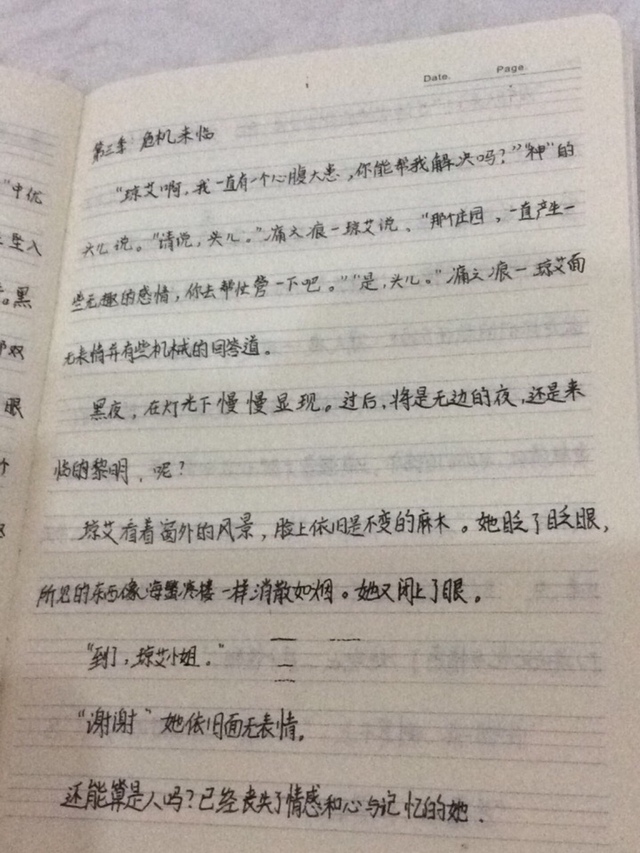 Date. Page.
第三章：危机来临
“琼艾啊，我一直有一个心腹大患，你能帮我解决吗？”“神”的
头儿说。“请说，头儿。”痛之痕—琼艾说、“那个庄园，一直产生一
些无趣的感情，你去帮忙管一下吧。”“是，头儿。”痛之痕—琼艾面
无表情并有些机械的回答道。
黑夜，在灯光下慢慢显现。过后，将是无边的夜，还是来
临的黎明，呢？
琼艾看着窗外的风景，脸上依旧是不变的麻木。她眨了眨眼，
所见的东西像海蜃楼一样消散如烟。她又闭上了眼。
“到了，琼艾小姐。”
“谢谢”她依旧面无表情。
还能算是人吗？已经丧失了情感和心与记忆的她.
“中优
坠入
。黑
双
眼